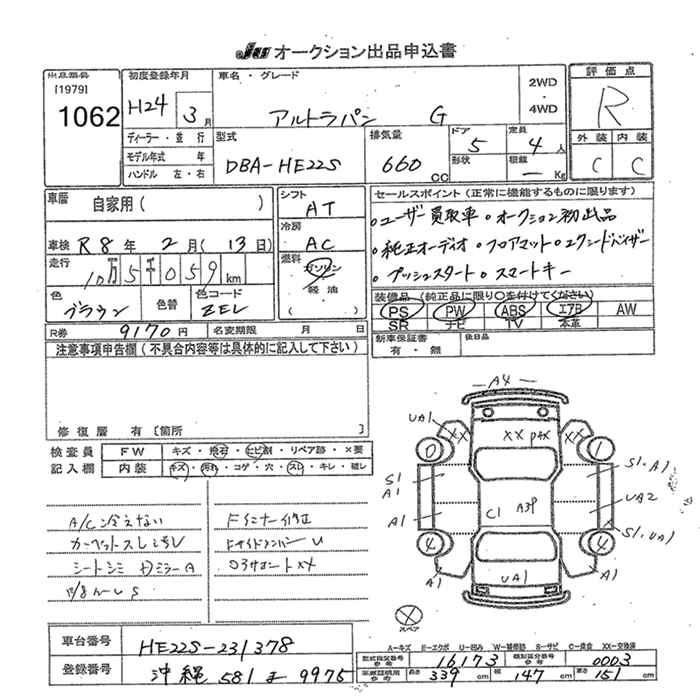 JU オークション出品申込書
出品番号 [1979] 1062
初度登録年月 H24年 3月
車名・グレード アルトラパン G
2WD・4WD
評価点 R
外装 内装
C C
ディーラー・並行
モデル年式 年
ハンドル 左・右
型式 DBA-HE22S
排気量 660 cc
ドア 5
形状
定員 4人
積載 ー Kg
車歴 自家用 ( )
車検 R8年 2月 (13日)
走行 10万5千059km
色 ブラウン
色替
色コード ZEL
シフト AT
冷房 AC
燃料 ガソリン 軽油 ( )
セールスポイント (正常に機能するものに限ります)
。ユーザー買取車。オークション初出品
。純正オーディオ。フロアマット。
。プッシュスタート。スマートキー
装備品 (純正品に限り○を付けてください)
PS PW ABS エアB AW
SR ナビ TV 本革
R券 9170円
名変期限 月 日
新車保証書 有・無
後日品
注意事項申告欄 (不具合内容等は具体的に記入して下さい)
修復歴 有 [箇所 ]
検査員記入欄
FW キズ・飛石・ヒビ割・リペア跡・×要
内装 キズ・汚れ・コゲ・穴・スレ・キレ・破レ
A/C冷えない
カーペットスレ汚レ
シートシミ
Fインナー修正
FサイドメンバーU
A4
UA1
XX
XX
XX
S1
A1
S1.A1
A1
C1
A3P
UA2
S1.UA1
A1
UA1
A1
スペア
A-キズ E-エクボ U-凹み W-補修跡 S-サビ C-腐食 XX-交換済
車台番号 HE22S-231378
登録番号 沖縄 581 ま 9975
型式指定番号 参考 16173
類別区分番号 参考 0003
車検証明用 参考 長さ 339cm 幅 147cm 高さ 151cm